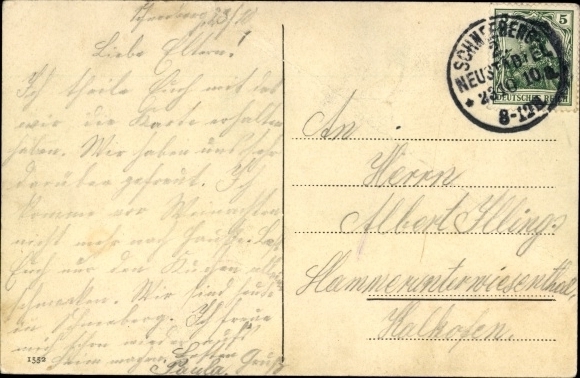 Schneeberg 23/10
Liebe Eltern!
Ich theile Euch mit das
wir die Karte erhalten
haben. Wir haben uns sehr
darüber gefreut. Ich
komme vor Weinachten
nicht mehr nach Hause. Laßt
Euch nur den Kuchen
schmecken. Wir sind heute
in Schneeberg. Ich freue
mich schon wieder aufs
heim. Besten Gruß
Paula.
1552
SCHNEEBERG-
NEUSTÄDTEL
23.10.10
8-12V.
5
DEUTSCHES REICH
An
Herrn
Albert Illing.
Hammerunterwiesenthal,
Kalkofen.